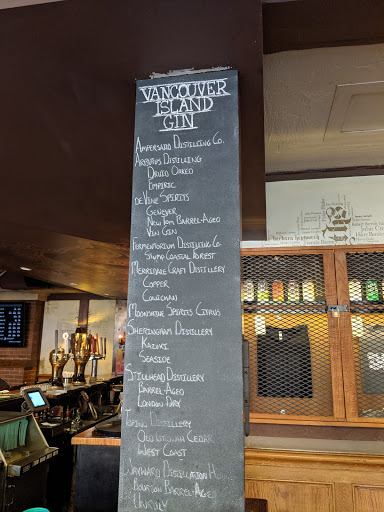 VANCOUVER
ISLAND
GIN
AMPERSAND DISTILLING CO.
ARBUTUS DISTILLING
DRUID OAKED
EMPIRIC
DEVINE SPIRITS
GENEVER
NEW TOM BARREL-AGED
VIN GIN
FERMENTORIUM DISTILLING CO.
STUMP COASTAL FOREST
MERRIDALE CRAFT DISTILLERY
COPPER
COWICHAN
MOONSHINE SPIRITS CITRUS
SHERINGHAM DISTILLERY
KAZUKI
SEASIDE
STILLHEAD DISTILLERY
BARREL AGED
LONDON DRY
DISTILLERY
CEDAR
WEST COAST
WAYWARD DISTILLATION
BOURBON BARREL-AGED
UNRULY